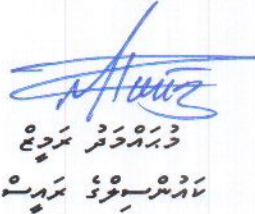 މުޙައްމަދު ރަމީޒް
ކައުންސިލްގެ ރައީސް